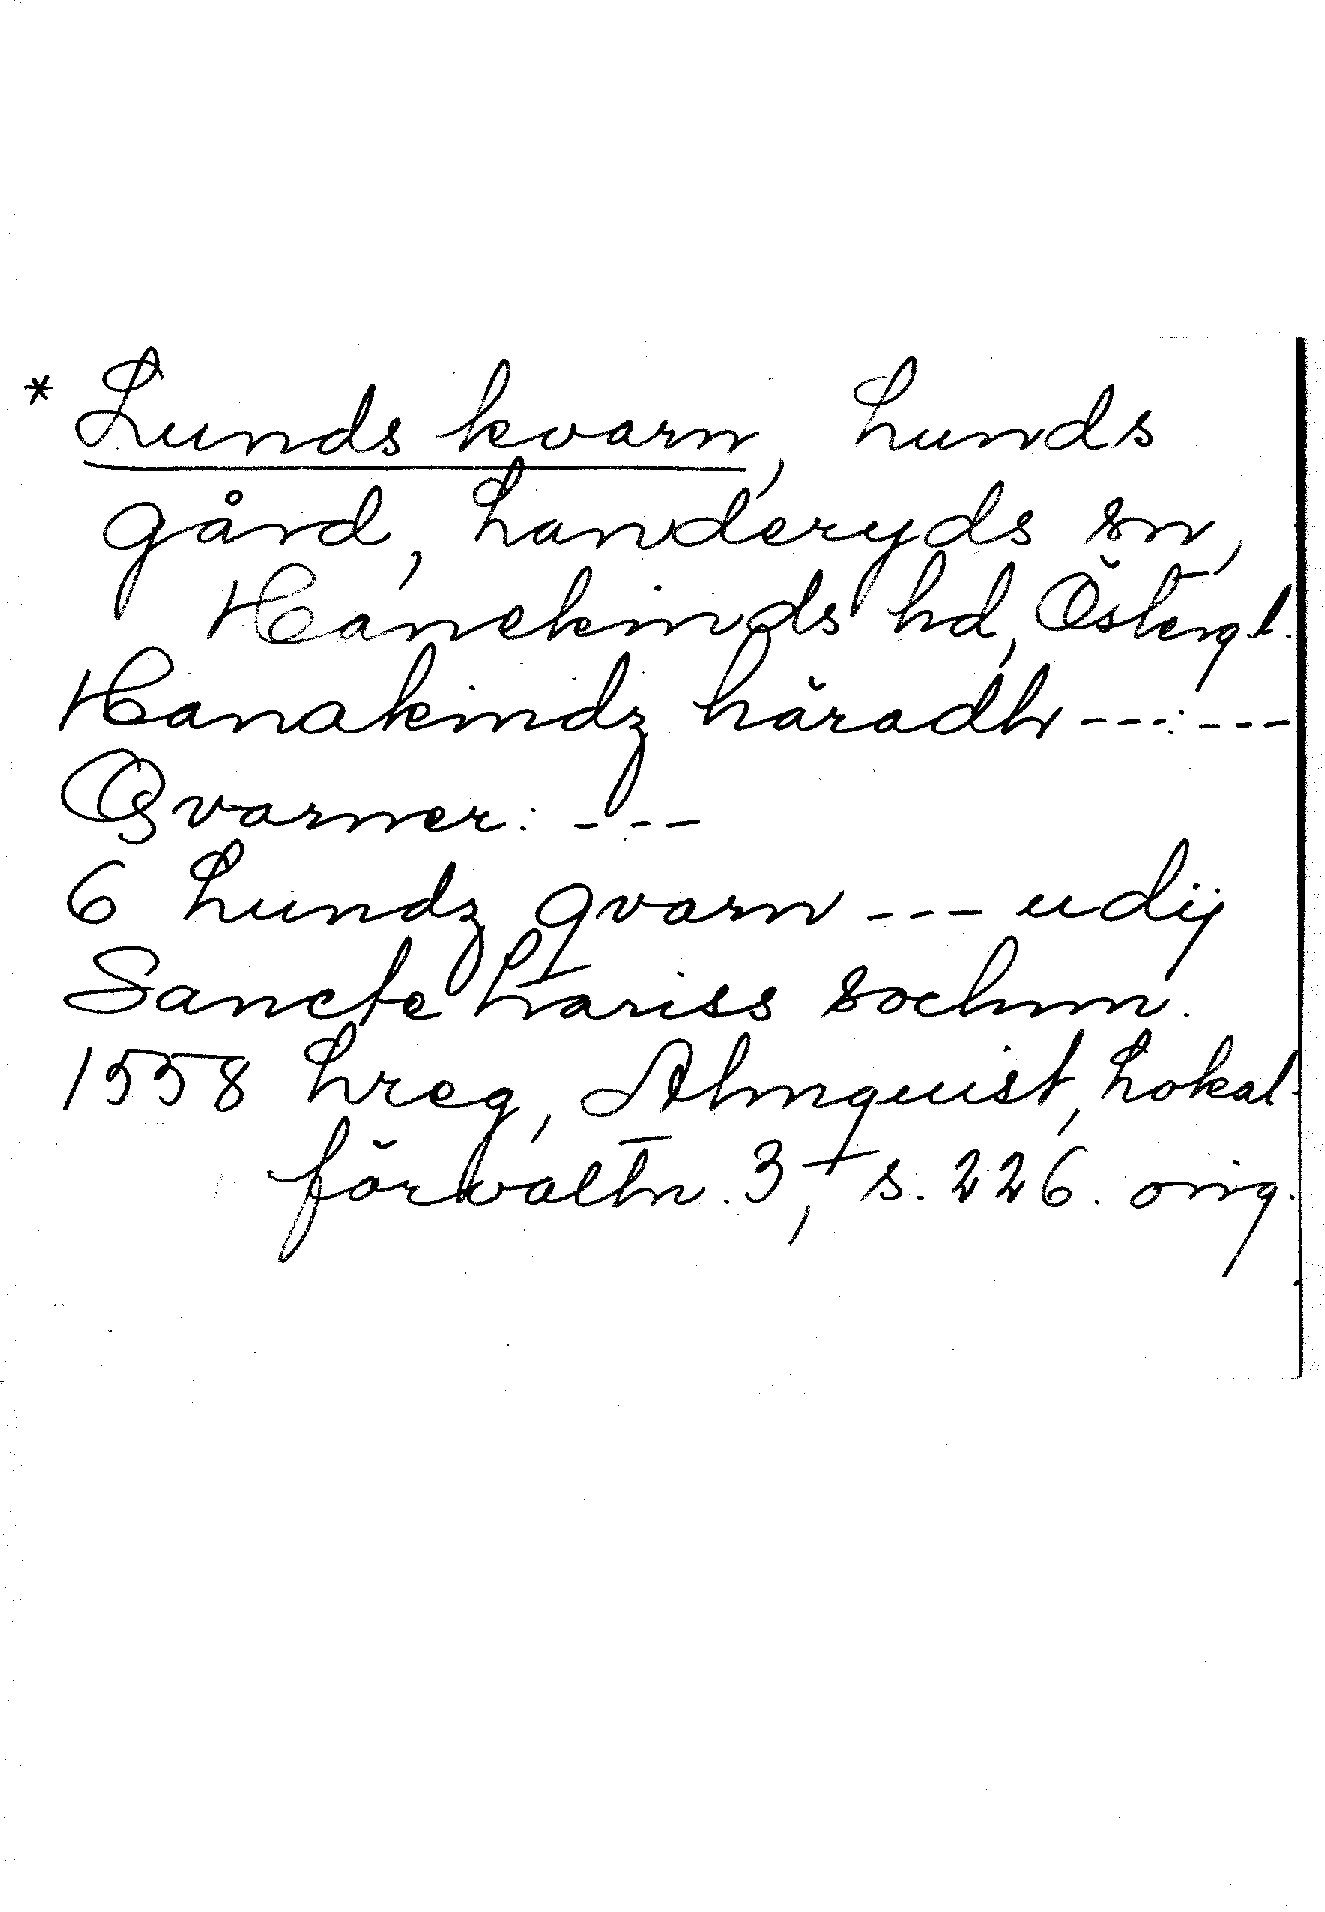 * Lunds kvarn, Lunds
gård, Landeryds sn,
Hanekinds hd, Östergl.
Hanakindz häradh ---:---
Qvarner: ---
6 Lundz qvarn --- udij
Sancte Lariss sochnn.
1558 Lreg, Almquist, Lokal-
förvaltn. 3, s. 226. orig.